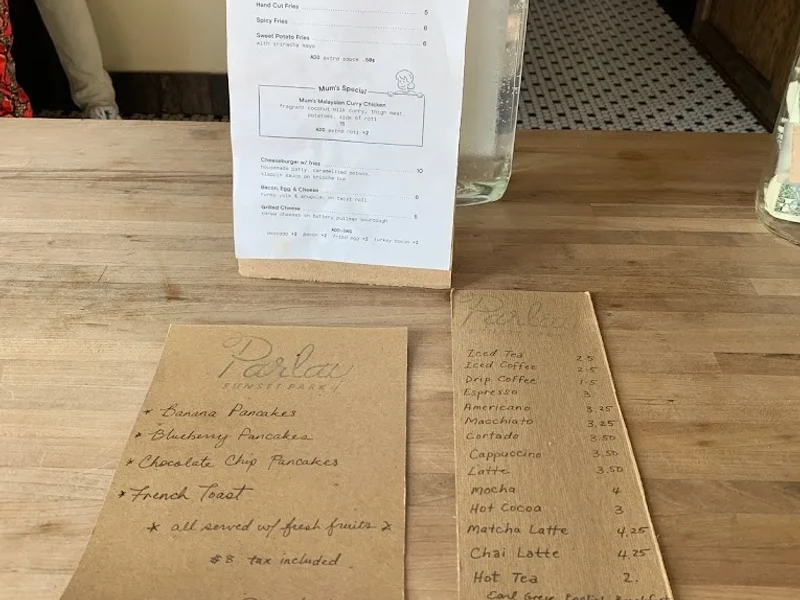 Hand Cut Fries 5
Spicy Fries 6
Sweet Potato Fries 6
with sriracha mayo
ADD extra sauce .50¢
Mum's Special
Mum's Malaysian Curry Chicken
fragrant coconut milk curry, thigh meat,
potatoes, side of roti
15
ADD extra roti +2
Cheeseburger w/ fries 10
housemade patty, caramelized onions,
sauce on brioche bun
Bacon, Egg & Cheese 6
runny yolk & arugula, on twist roll
Grilled Cheese 5
three cheeses on buttery pullman sourdough
ADD-ONS
avocado +2 bacon +2 fried egg +2 turkey bacon +2
Parlay
SUNSET PARK
* Banana Pancakes
* Blueberry Pancakes
* Chocolate Chip Pancakes
* French Toast
* all served w/ fresh fruits *
$8 tax included
Parlay
Iced Tea 2.5
Iced Coffee 2.5
Drip Coffee 1.5
Espresso 3
Americano 3.25
Macchiato 3.25
Cortado 3.50
Cappuccino 3.50
Latte 3.50
Mocha 4
Hot Cocoa 3
Matcha Latte 4.25
Chai Latte 4.25
Hot Tea 2.
Earl Grey